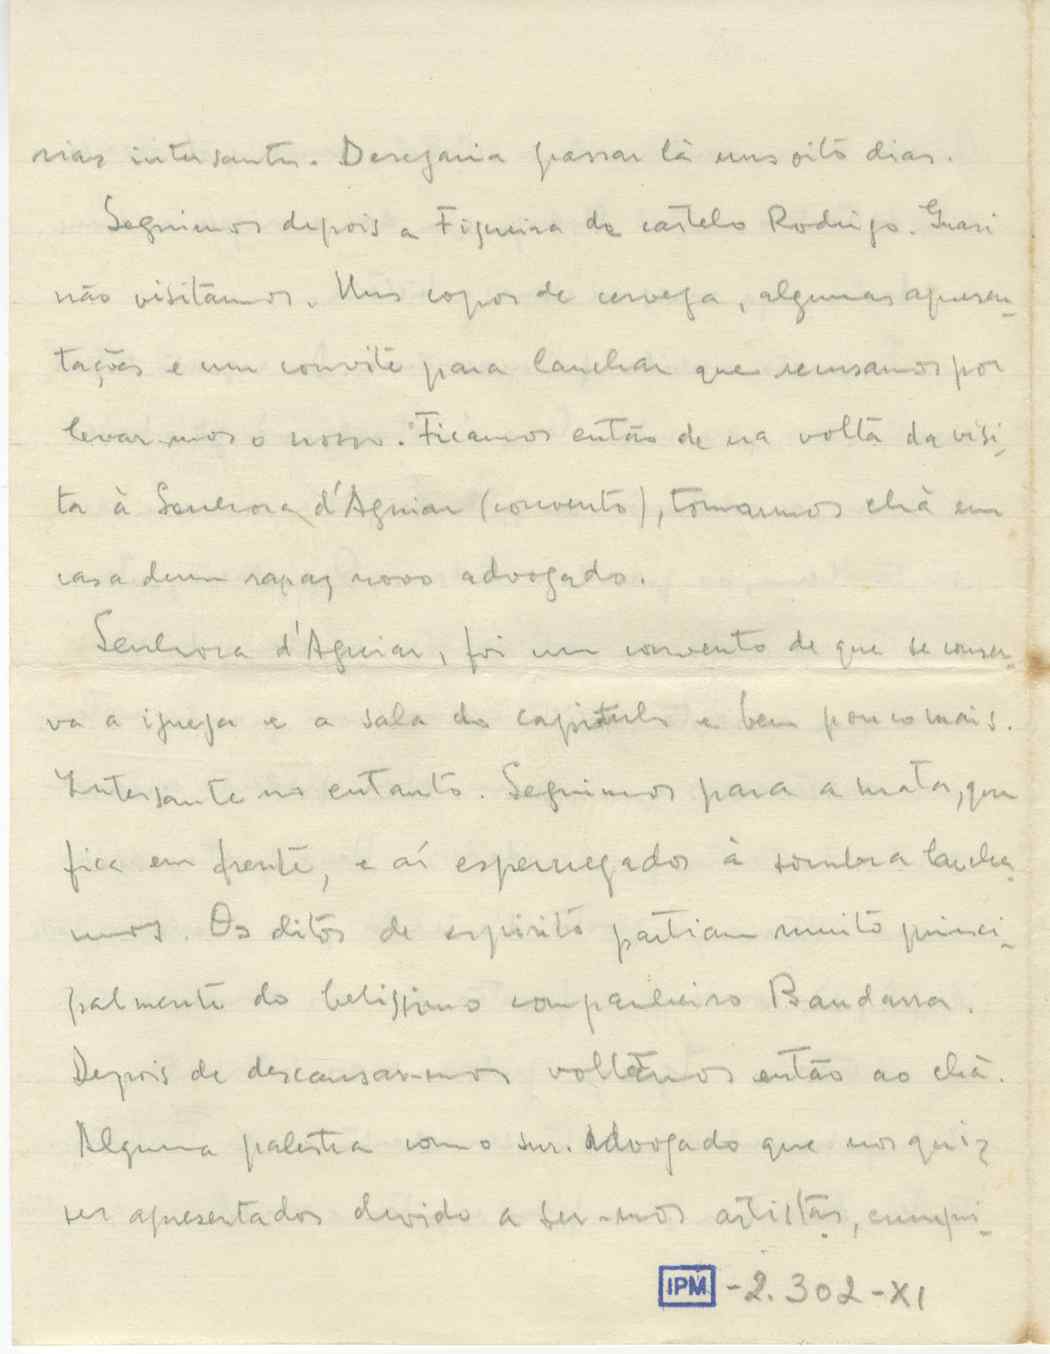 rias intersantes. Desejaria passar là uns oitò dias.
Seguimos depois a Figueira de castelo Rodrigo. Quasi
não visitàmos. Uns copos de cerveja, algumas apresen-
tações e um convite para lanchar que recusamos por
levar-mos o nosso. Ficamos então de na volta da visi-
ta à Senhora d'Aguiar (convento), tomarmos chà em
casa dum rapaz novo advogado.
Senhora d'Aguiar, foi um convento de que se conser-
va a igreja e a sala do capitulo e bem pouco mais.
Intersante no entanto. Seguimos para a mata, que
fica em frente, e aí espernegados à sombra lancha-
mos. Os ditos de espirito partiam muito princi-
palmente do belissimo companheiro Bandarra.
Depois de descansar-mos voltàmos então ao chà.
Alguma palestra com o snr. Advogado que nos quiz
ser apresentados devido a ser-mos artistas, cumpri-
IPM -2.302-XI